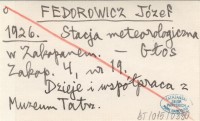 o
FEDOROWICZ Józef
1926. Stacja meteorologiczna
w Zakopanem. — Głos
Zakop. 4, nr 19.
Dzieje i współpraca z
Muzeum Tatrz.